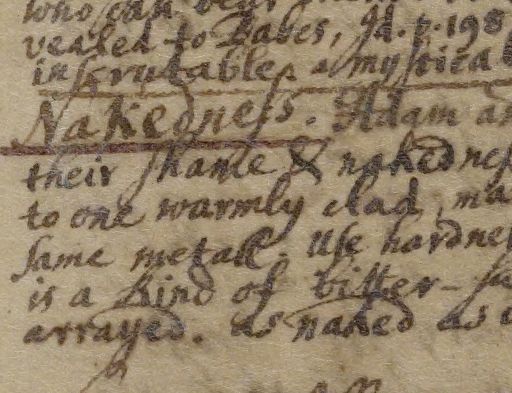 who can
vealed to Babes, Id. p. 198
inſcrutable. a myſtica
Nakedneſs. Adam an
their ſhame & nakedneſ
to one warmly clad, ma
ſame metall. Uſe hardneſ
is a kind of bitter-ſ
arrayed. as naked as